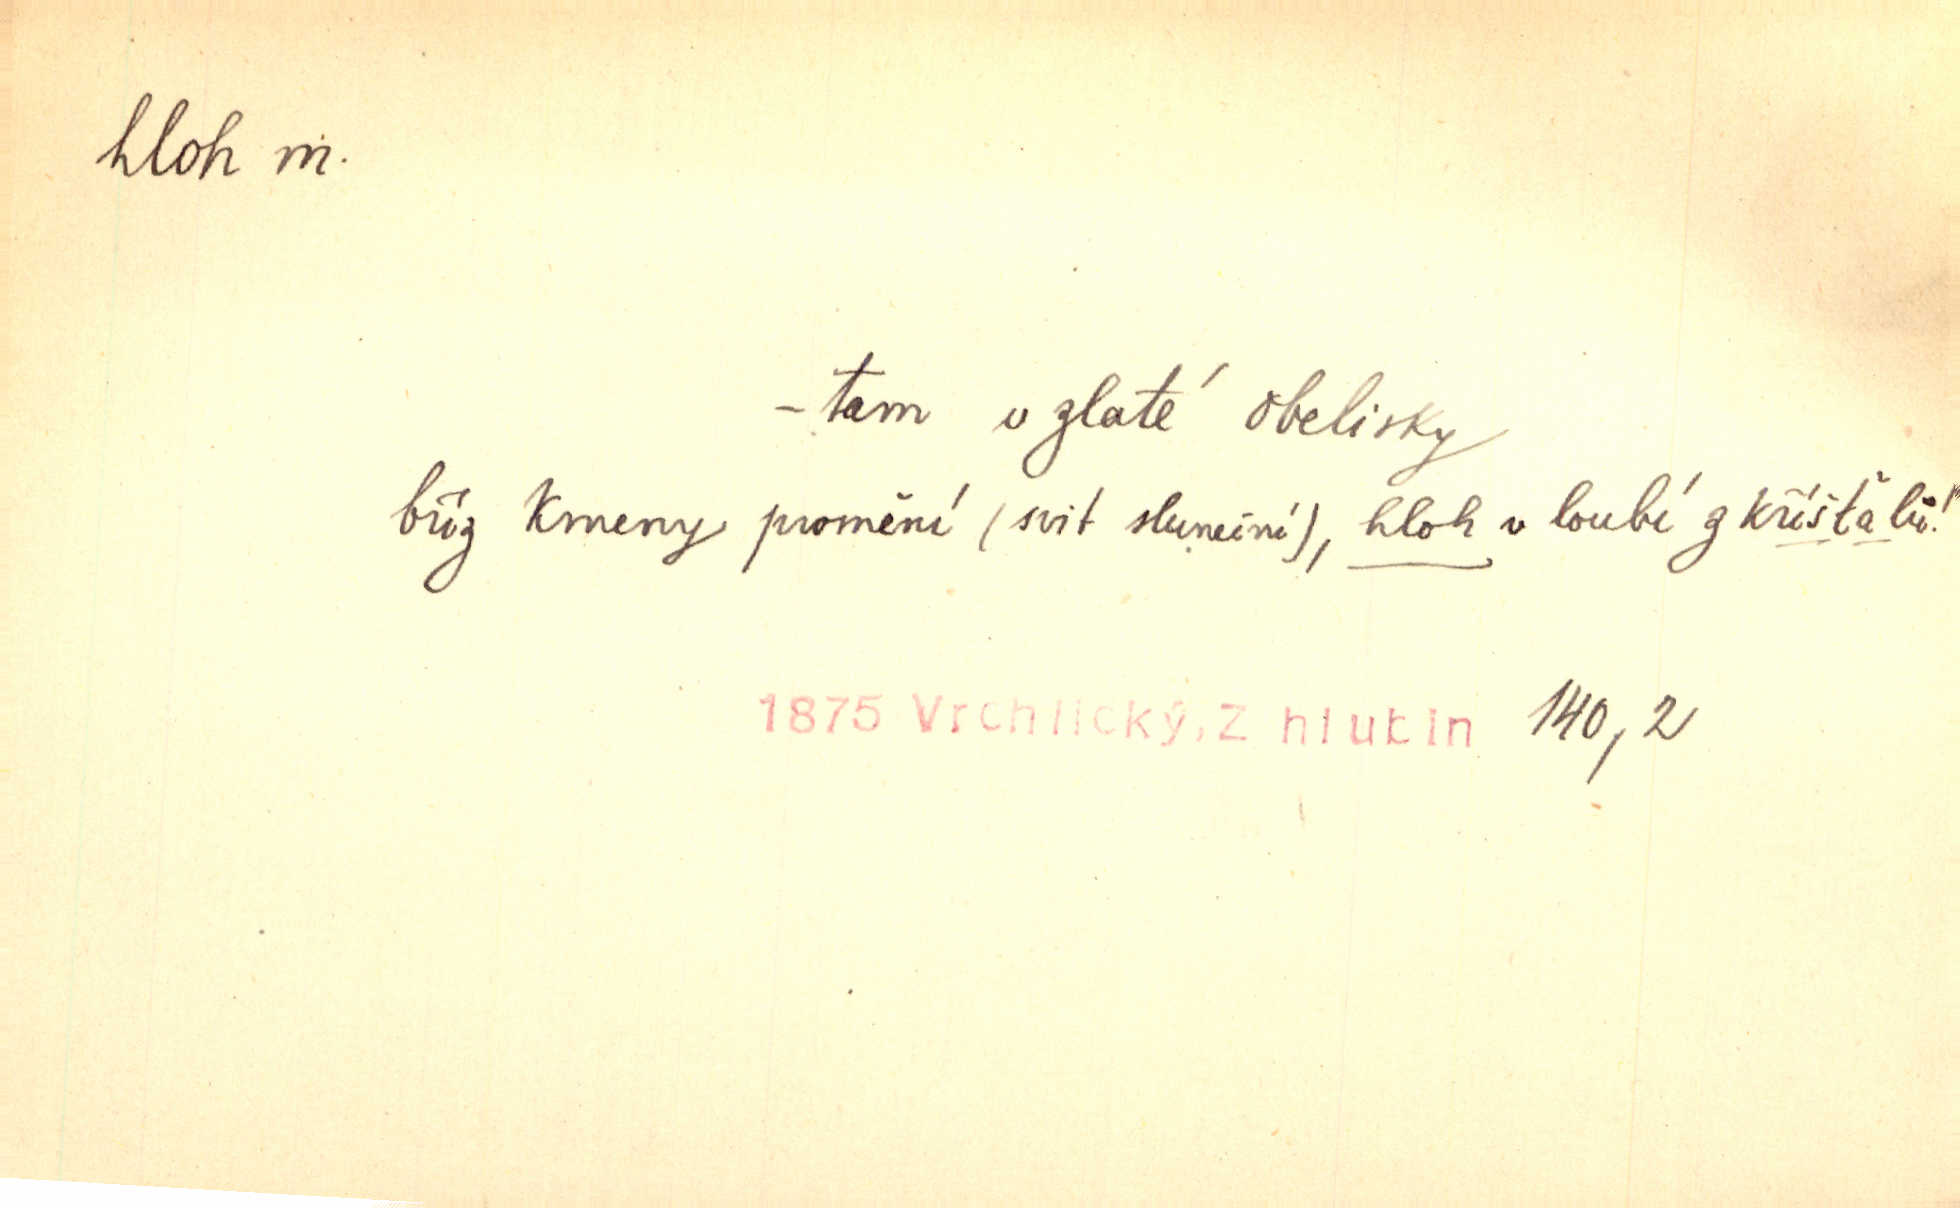 hloh m.
– tam v zlaté obelisky
bříz kmeny promění (svit sluneční), hloh v loubí z kříšťálů!
1875 Vrchlický, Z hlubin 140,2